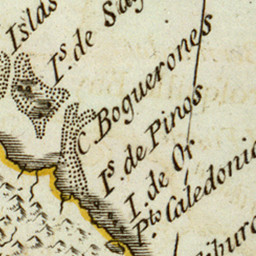 Islas
Is. de Sa
C. Boguerones
Is. de Pinos
I. de Or
Pto Caledonia